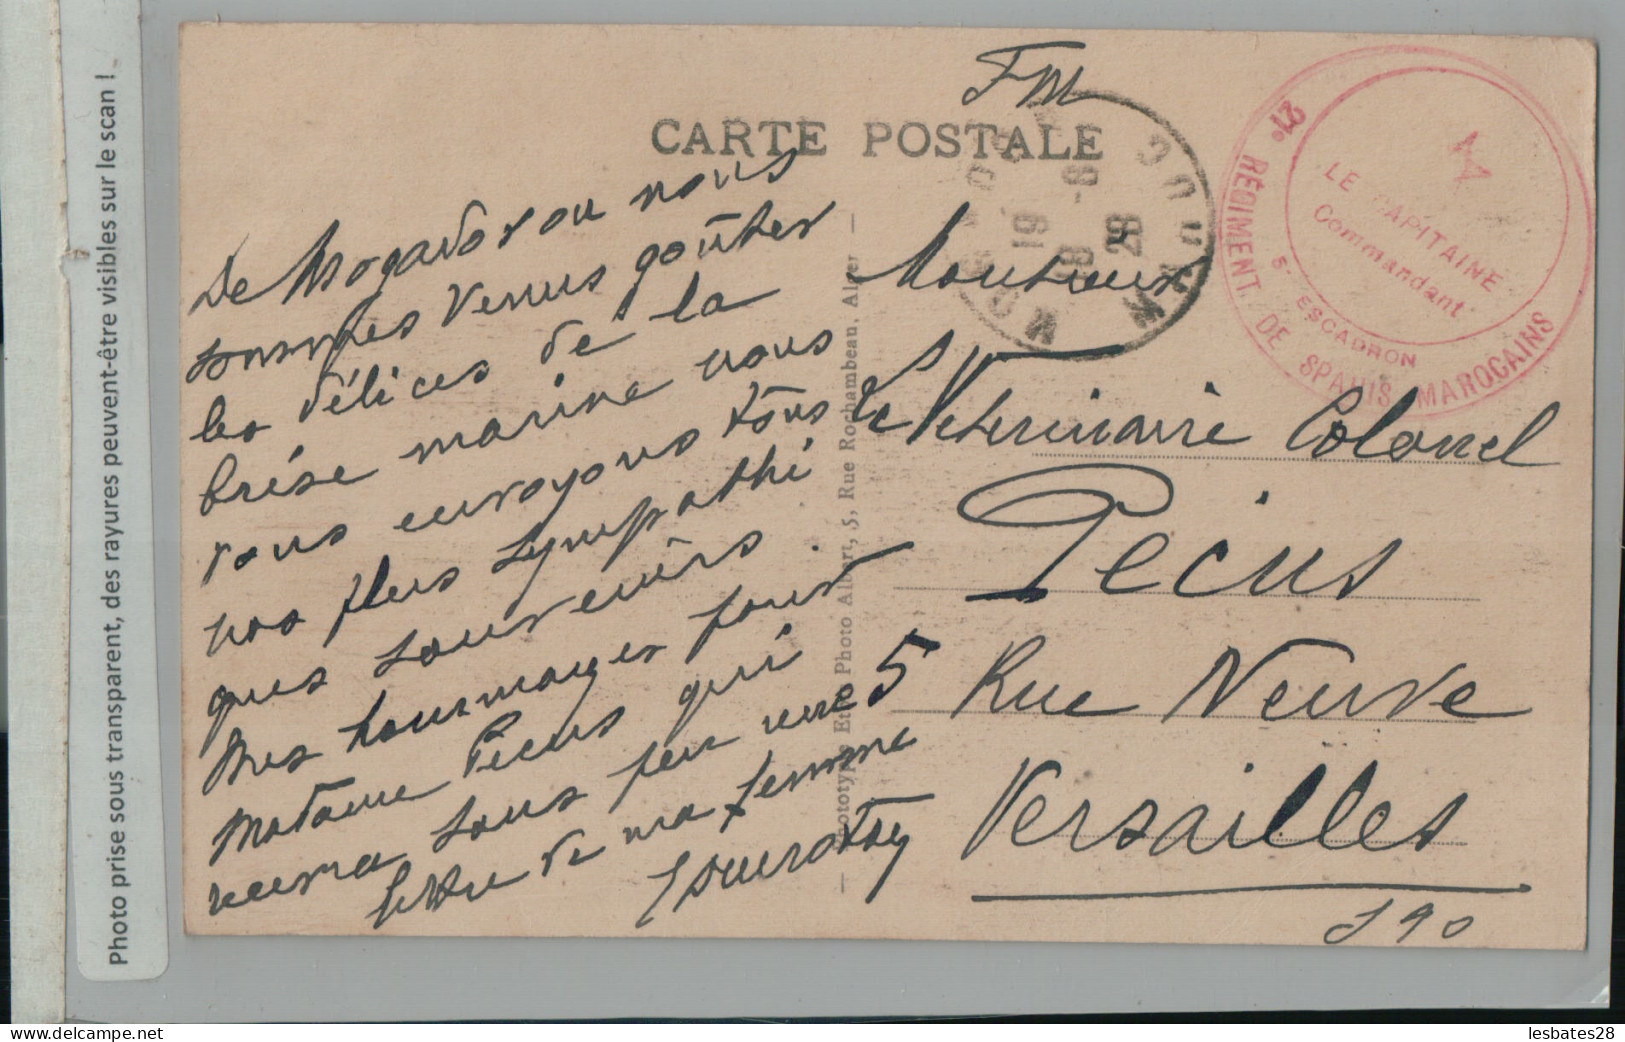 Photo prise sous transparent, des rayures peuvent-être visibles sur le scan !
FM
CARTE POSTALE
De Mogador ou nous
sommes venus goûter
les délices de la
brise marine nous
vous envoyons tous
nos plus sympathi
ques souvenirs.
Mes hommages pour
Madame Pecus qui
recevra sous peu une
lettre de ma femme
Phototypie Et Photo Albert, 5, Rue Rochambeau, Alger
19 - 8
29
2e RÉGIMENT DE SPAHIS MAROCAINS
LE CAPITAINE
Commandant
5e ESCADRON
Monsieur
le Vétérinaire Colonel
Pécus
5 Rue Neuve
Versailles
S 90
lesbates28